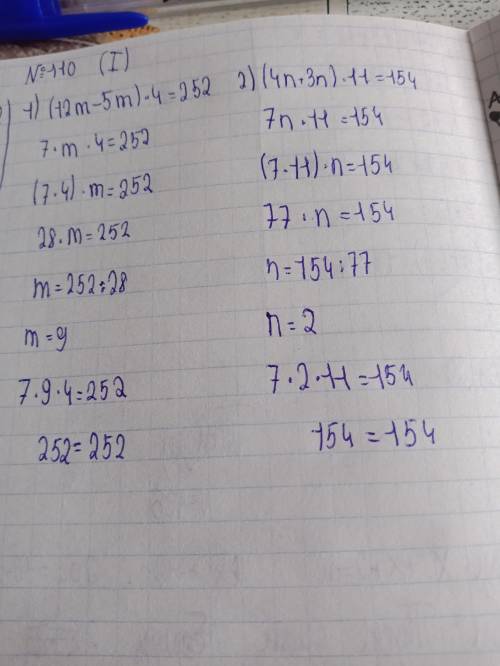 №110 (I)
1) (12m-5m)·4=252
7·m·4=252
(7·4)·m=252
28·m=252
m=252:28
m=9
7·9·4=252
252=252
2) (4n+3n)·11=154
7n·11=154
(7·11)·n=154
77·n=154
n=154:77
n=2
7·2·11=154
154=154